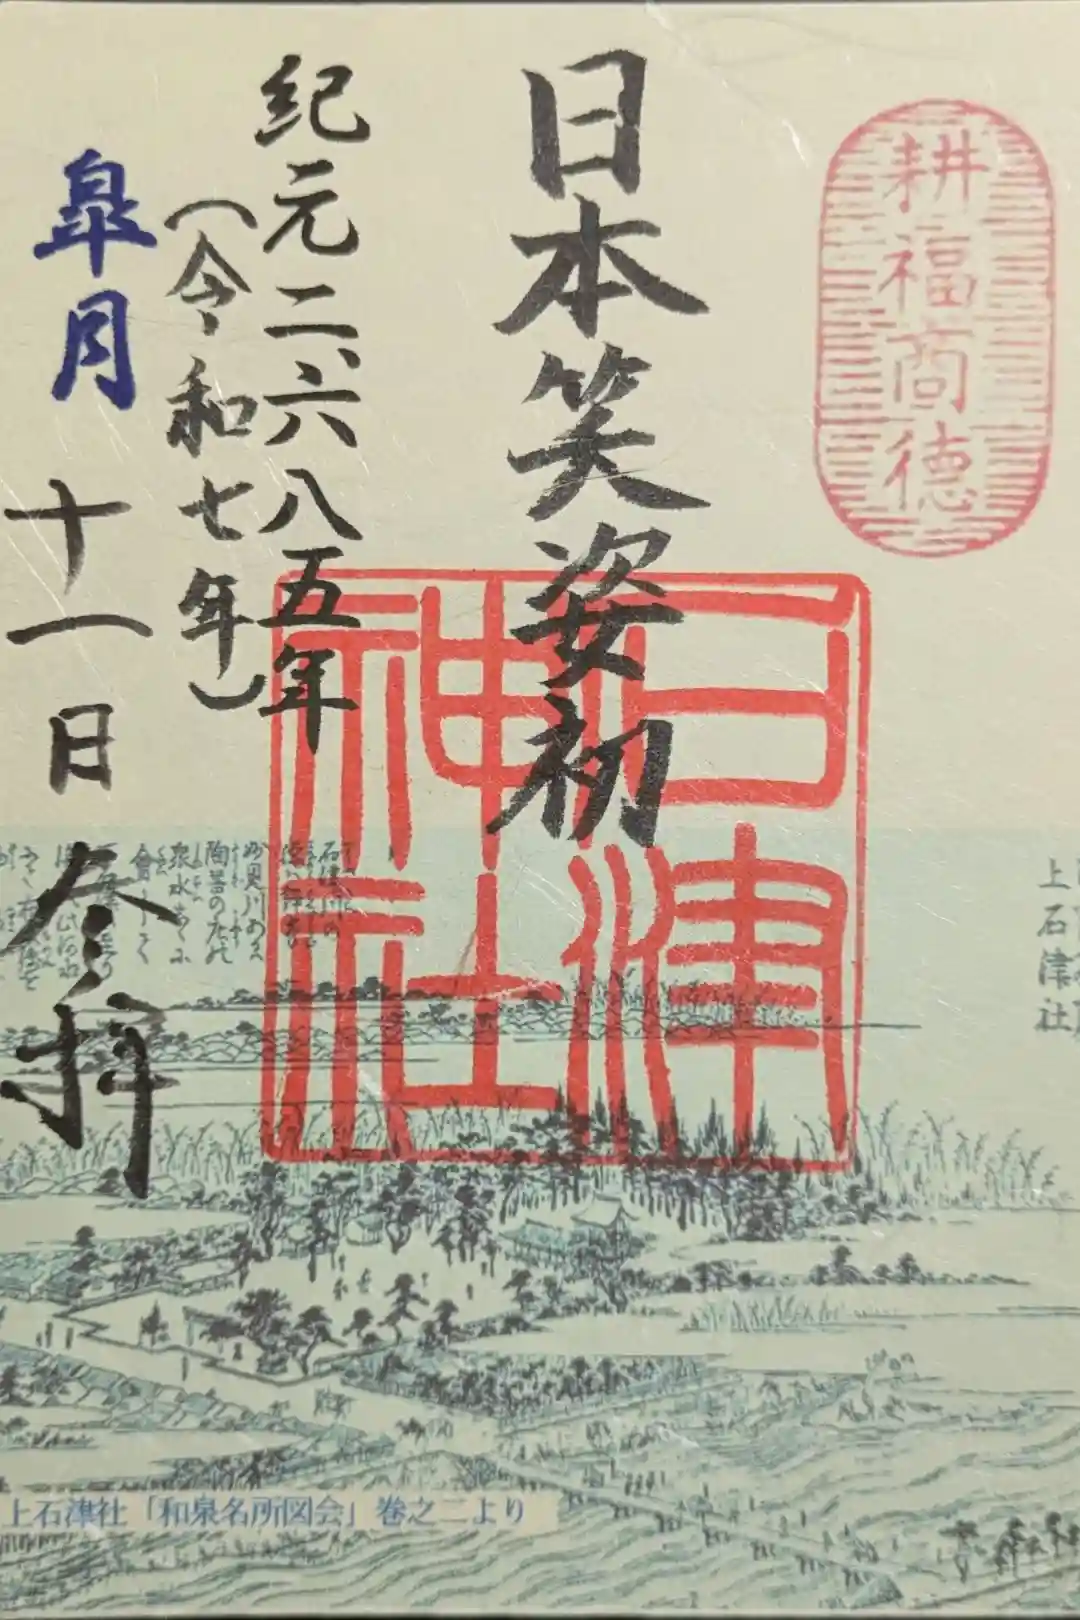 耕福商德
日本笑姿初
紀元二、六八五年
（令和七年）
皐月 十一日 参拝
神社
上石津社
石津川の
陶器の
上石津社「和泉名所図会」巻之二より